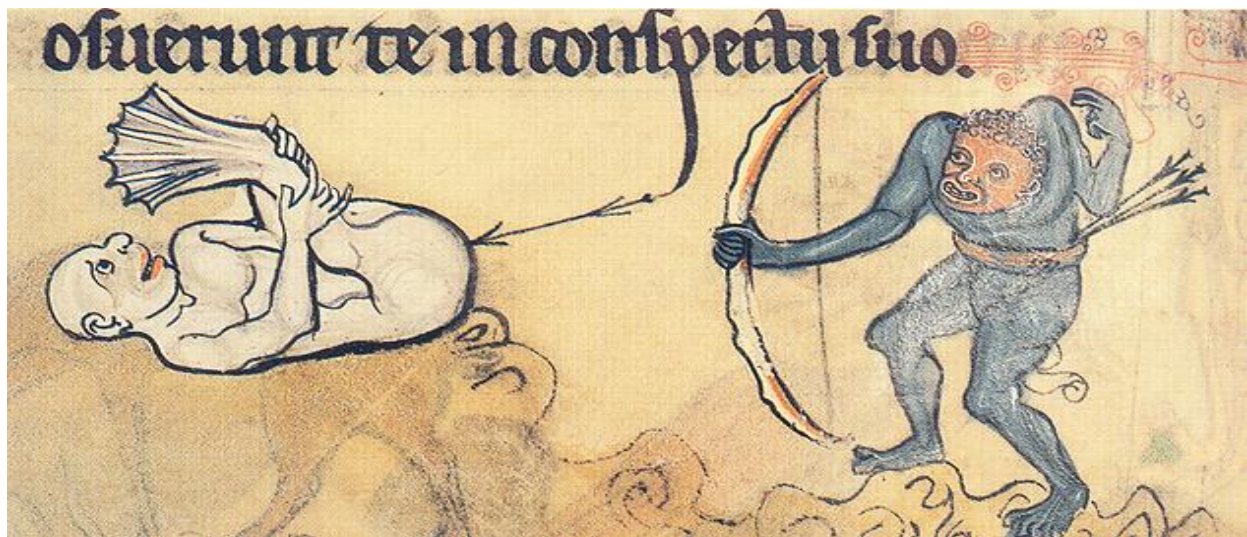 osuerunt te in conspectu suo.